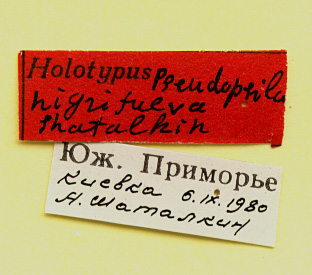 Holotypus Pseudopsila
nigrifulva
Shatalkin
Юж. Приморье
Киевка 6.IX.1980
А. Шаталкин